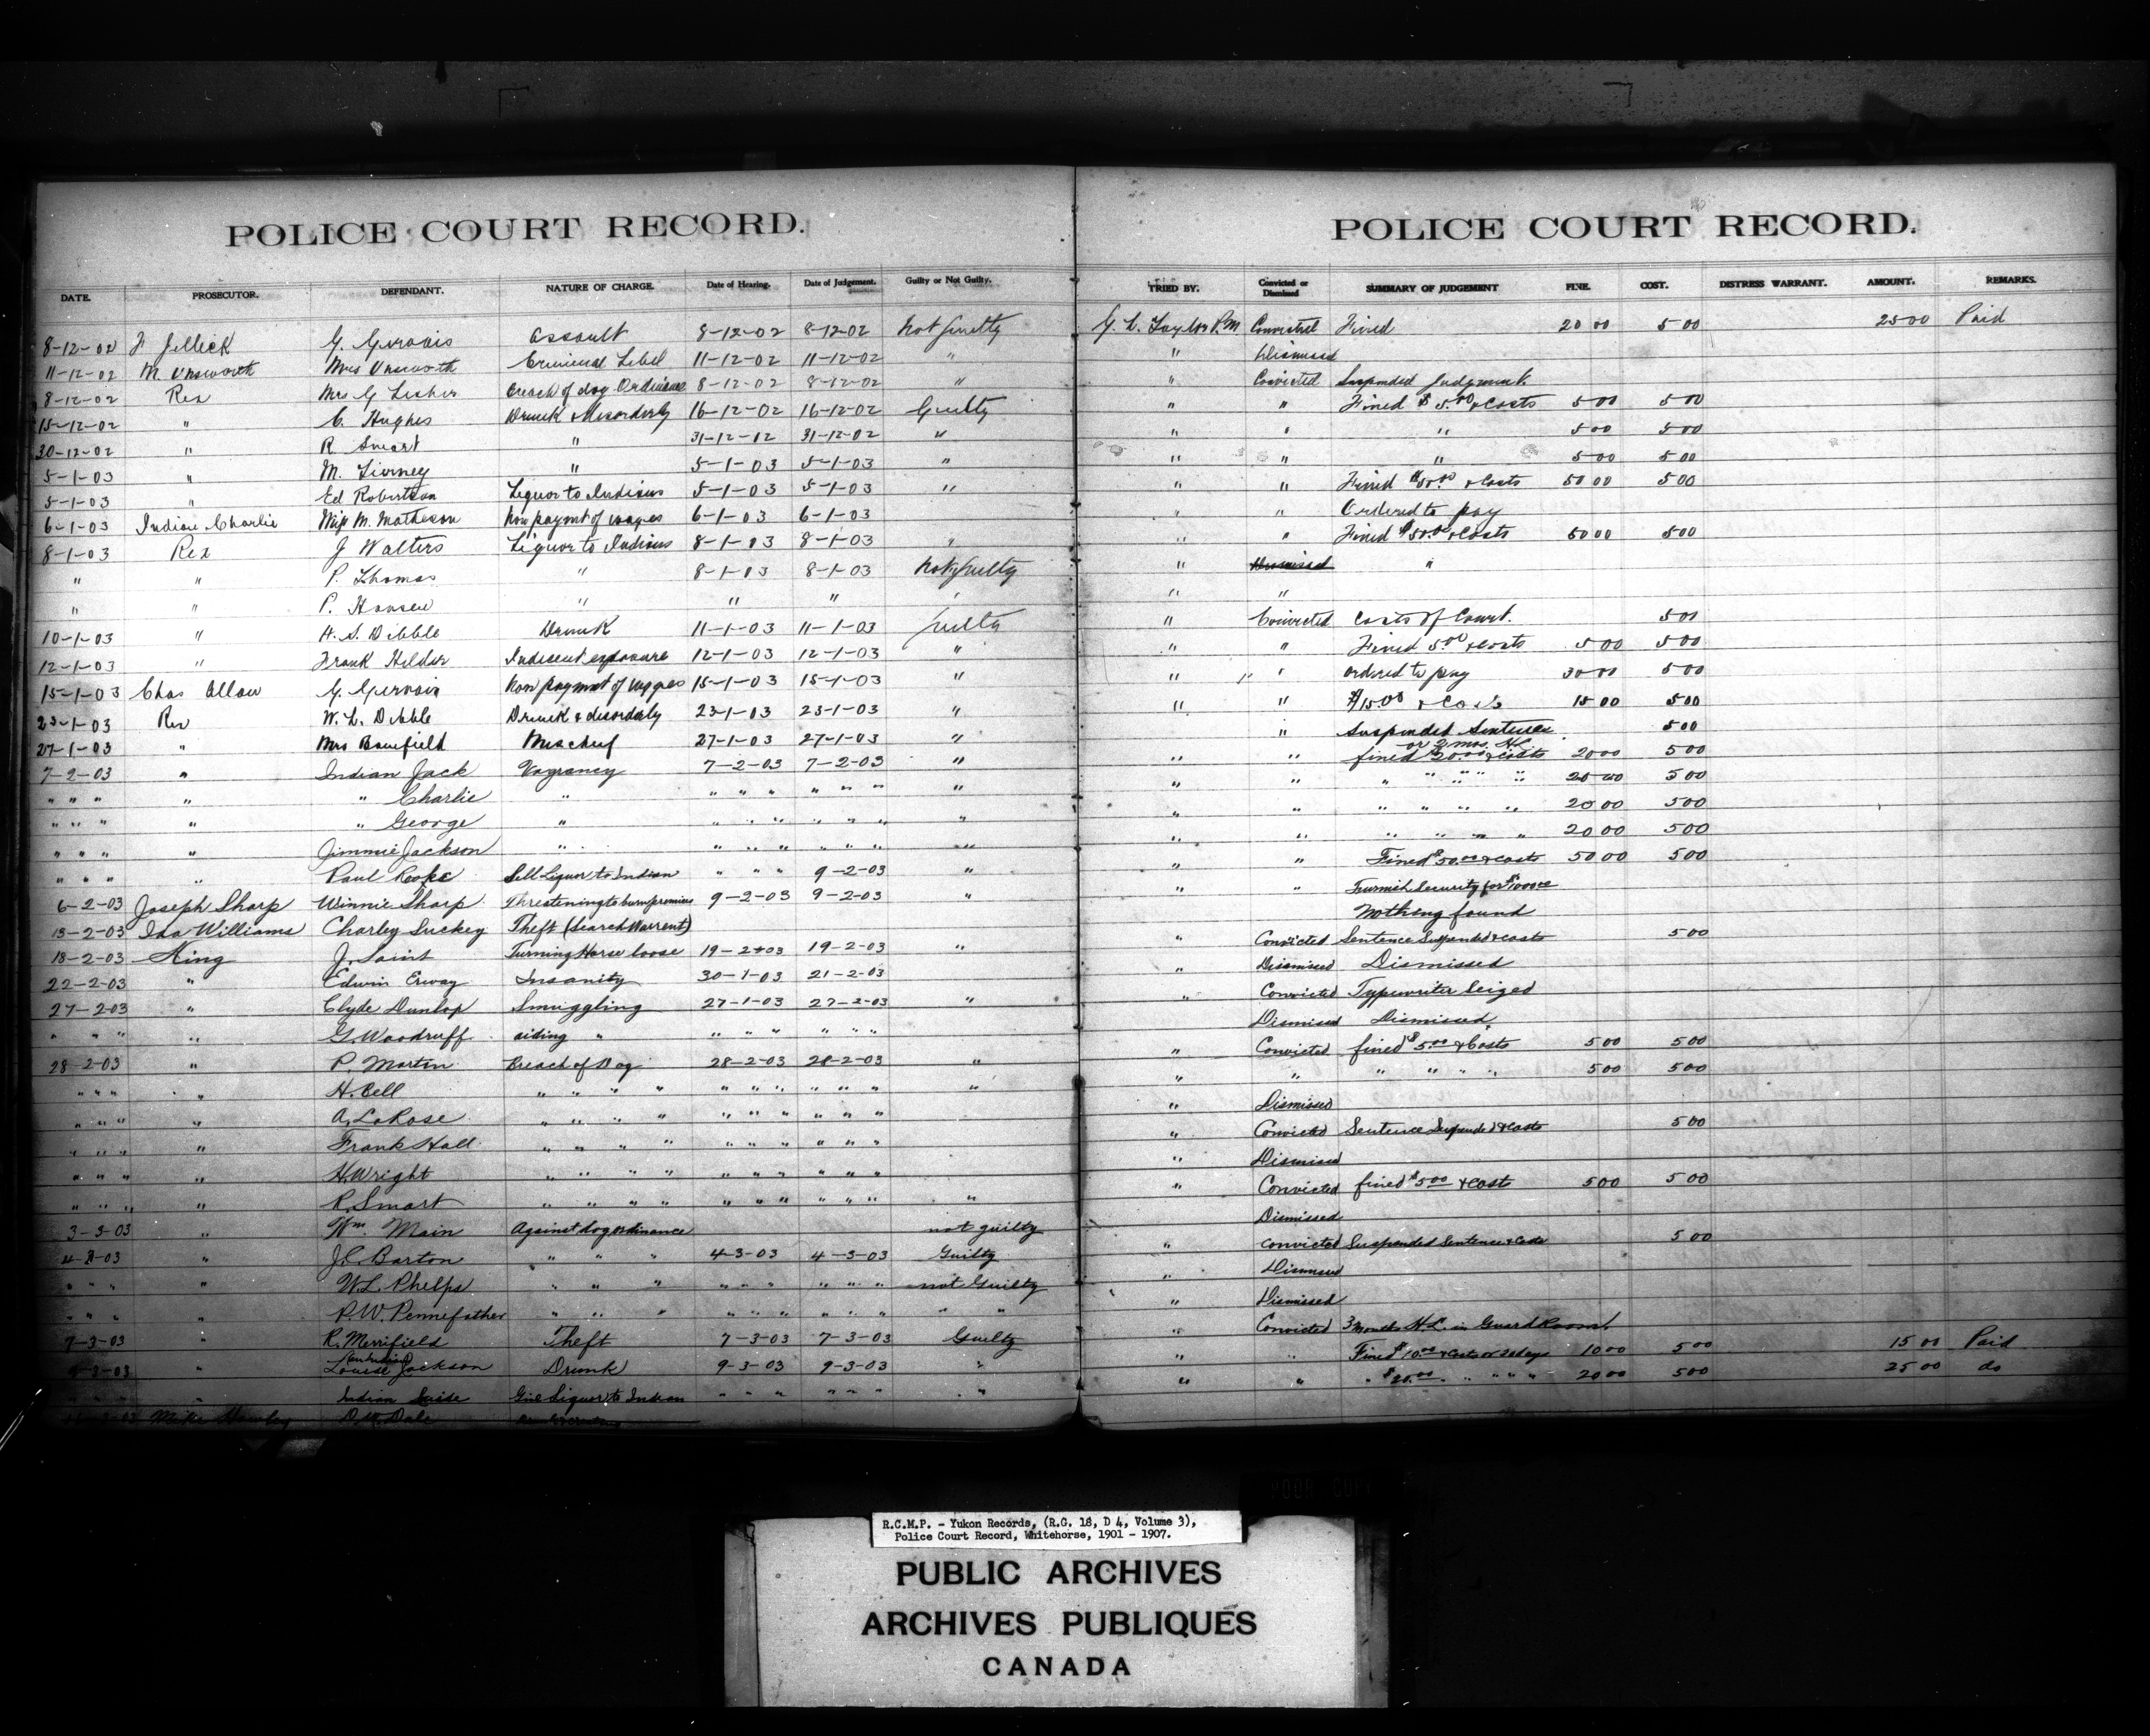 POLICE COURT RECORD. POLICE COURT RECORD.
DATE. PROSECUTOR. DEFENDANT. NATURE OF CHARGE. Date of Hearing. Date of Judgement. Guilty or Not Guilty. TRIED BY. Convicted or Dismissed SUMMARY OF JUDGEMENT FINE. COST. DISTRESS WARRANT. AMOUNT. REMARKS.
8-12-02 J Jellick G. Gervais Assault 8-12-02 8-12-02 Not Guilty G. L. Taylor P.M Convicted Fined 20 00 5 00 25 00 Paid
11-12-02 M. Unsworth Mrs Unsworth Criminal Libel 11-12-02 11-12-02 " " Dismissed
8-12-02 Rex Mrs G Lesher Breach of dog Ordinance 8-12-02 8-12-02 " " Convicted Suspended Judgment.
15-12-02 " C. Hughes Drunk & Disorderly 16-12-02 16-12-02 Guilty " " Fined $5.00 & Costs 5 00 5 00
30-12-02 " R Smart " 31-12-02 31-12-02 " " " " 5 00 5 00
5-1-03 " M. Tierney " 5-1-03 5-1-03 " " " " 5 00 5 00
5-1-03 " Ed Robertson Liquor to Indians 5-1-03 5-1-03 " " " Fined $50.00 & Costs 50 00 5 00
6-1-03 Indian Charlie Miss M. Matheson Non paymt of wages 6-1-03 6-1-03 " " Ordered to pay
8-1-03 Rex J Walters Liquor to Indians 8-1-03 8-1-03 " " " Fined $50.00 & Costs 50 00 5 00
" " P. Thomas " 8-1-03 8-1-03 Not Guilty " Dismissed "
" " P. Hansen " " " " " "
10-1-03 " H. S. Dibble Drunk 11-1-03 11-1-03 Guilty " Convicted Costs of Court. 5 00
12-1-03 " Frank Hilder Indisent exposure 12-1-03 12-1-03 " " " Fined 5.00 & Costs 5 00 5 00
15-1-03 Chas Allan G. Gervais Non paymnt of wages 15-1-03 15-1-03 " " " ordered to pay 30 00 5 00
23-1-03 Rex W. L. Dibble Drunk & disordaly 23-1-03 23-1-03 " " " $15.00 & Costs 15 00 5 00
27-1-03 " Mrs Banfield Mischief 27-1-03 27-1-03 " " Suspended Sentence 5 00
or 2 mos. H.L
7-2-03 " Indian Jack Vagrancy 7-2-03 7-2-03 " " " fined $20.00 & costs 20 00 5 00
" " " " " Charlie " " " " " " " " " " " " " " 20 00 5 00
" " " " " George " " " " " " " " " " " " " " 20 00 5 00
" " " " Jimmie Jackson " " " " " " " " " " " " " " 20 00 5 00
" " " " Paul Rooke Sell Liquor to Indian " " " 9-2-03 " " " Fined $50.00 & costs 50 00 5 00
6-2-03 Joseph Sharp Winnie Sharp Threatening to burn premises 9-2-03 9-2-03 " " " Furnish Security for $1000.00
13-2-03 Ida Williams Charley Luckey Theft (Search Warrent) Nothing found
18-2-03 King J. Saint Turning Horse loose 19-2-03 19-2-03 " " Convicted Sentence Suspended & costs 5 00
22-2-03 " Edwin Erway Insanity 30-1-03 21-2-03 " Dismissed Dismissed
27-2-03 " Clyde Dunlop Smuggling 27-1-03 27-2-03 " " Convicted Typewriter Seized
" " " " G. Woodruff aiding " " " " " " " Dismissed Dismissed
28-2-03 " P. Martin Breach of Dog 28-2-03 28-2-03 " " Convicted fined $5.00 & Costs 5 00 5 00
" " " " H. Bell " " " " " " " " " " " " " " " " " 5 00 5 00
" " " " A. LaRose " " " " " " " " " " Dismissed
" " " " Frank Hall " " " " " " " " " " " Convicted Sentence Suspended & costs 5 00
" " " " H. Wright " " " " " " " " " " " Dismissed
" " " " R. Smart " " " " " " " " " " " " Convicted fined $5.00 & costs 5 00 5 00
3-3-03 " Wm. Main Against dog ordinance not guilty Dismissed
4-3-03 " J.C. Barton " " " 4-3-03 4-3-03 Guilty " Convicted Suspended Sentence & Costs 5 00
" " " " W.L. Phelps " " " " " " " " " not Guilty " Dismissed
" " " " P.W. Pennefather " " " " " " " " " " " " Dismissed
7-3-03 " R. Merrifield Theft 7-3-03 7-3-03 Guilty " Convicted 3 Months H.L. in Guard Room
9-3-03 " Louise Jackson Drunk 9-3-03 9-3-03 " " " Fined $10.00 & costs or 20 days 10 00 5 00 15 00 Paid
" " " " Indian Susie Give Liquor to Indian " " " " " " " " " " $20.00 " " " " 20 00 5 00 25 00 do
Mike D. W. Dale
POOR COPY
R.C.M.P. - Yukon Records, (R.G. 18, D 4, Volume 3),
Police Court Record, Whitehorse, 1901 - 1907.
PUBLIC ARCHIVES
ARCHIVES PUBLIQUES
CANADA